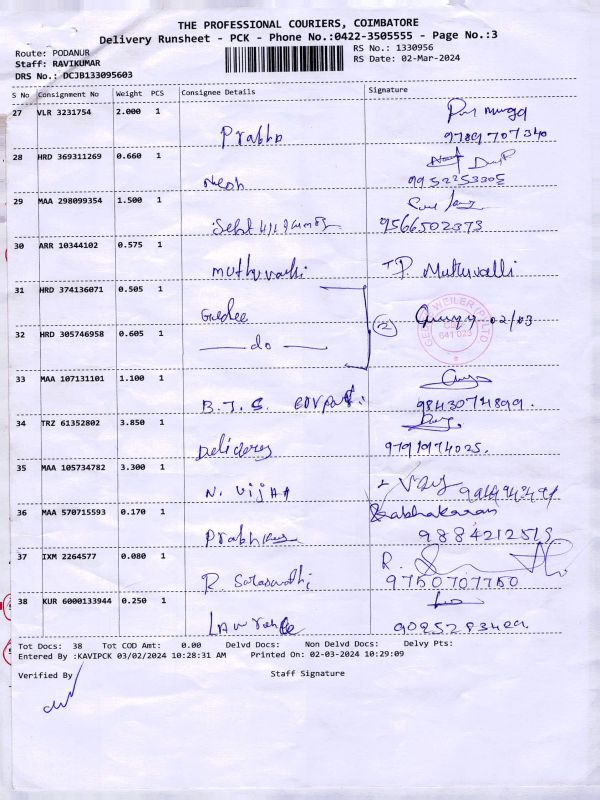 THE PROFESSIONAL COURIERS, COIMBATORE
Delivery Runsheet - PCK - Phone No.:0422-3505555 - Page No.:3
Route: PODANUR RS No.: 1330956
Staff: RAVIKUMAR RS Date: 02-Mar-2024
DRS No.: DCJB133095603
S No Consignment No Weight PCS Consignee Details Signature
27 VLR 3231754 2.000 1
Prabhu 9789707340
28 HRD 369311269 0.660 1
9952253305
29 MAA 298099354 1.500 1
9566502373
30 ARR 10344102 0.575 1
Muthuvalli T.P. Muthuvalli
31 HRD 374136071 0.505 1
Gedee
02/03
32 HRD 305746958 0.605 1
do
641 023
33 MAA 107131101 1.100 1
B.T.S. 9843074899.
34 TRZ 61352802 3.850 1
9791974025.
35 MAA 105734782 3.300 1
N. Vijay
36 MAA 570715593 0.170 1
Prabhakaran
9884212513
37 IXM 2264577 0.080 1
R.
R. Saraswathi 9750707750
38 KUR 6000133944 0.250 1
Lawrance
Tot Docs: 38 Tot COD Amt: 0.00 Delvd Docs: Non Delvd Docs: Delvy Pts:
Entered By :KAVIPCK 03/02/2024 10:28:31 AM Printed On: 02-03-2024 10:29:09
Verified By Staff Signature